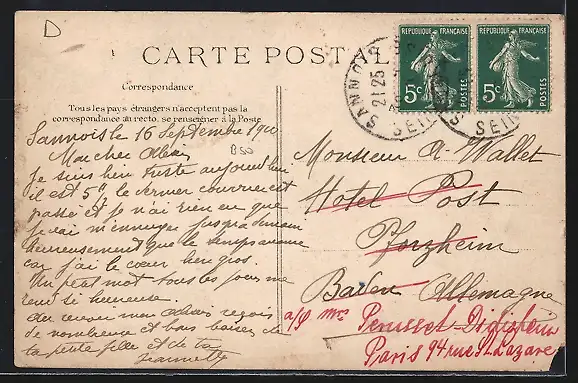 D
CARTE POSTALE
RÉPUBLIQUE FRANÇAISE
5c POSTES
RÉPUBLIQUE FRANÇAISE
5c POSTES
SANNOIS
21 25
SEINE
Correspondance
Tous les pays étrangers n'acceptent pas la
correspondance au recto. se renseigner à la Poste
Sannois le 16 Septembre 190
B50
Mon cher
Je suis bien triste aujourd'hui
il est 5h, le dernier courrier est
passé et je n'ai rien eu que
vais m'ennuyer jusqu'à demain
heureusement que le temps
car j'ai le cœur bien gros.
Un petit mot tous les jours me
rend si heureuse.
revoir mon reçois
de nombreux et bons baisers de
ta petite fille et de ta
Jeannette
Monsieur A. Wallet
Hotel Post
Pforzheim
Baden Allemagne
a/s Mrs
Perusset-Didisheim
Paris 94 rue St Lazare